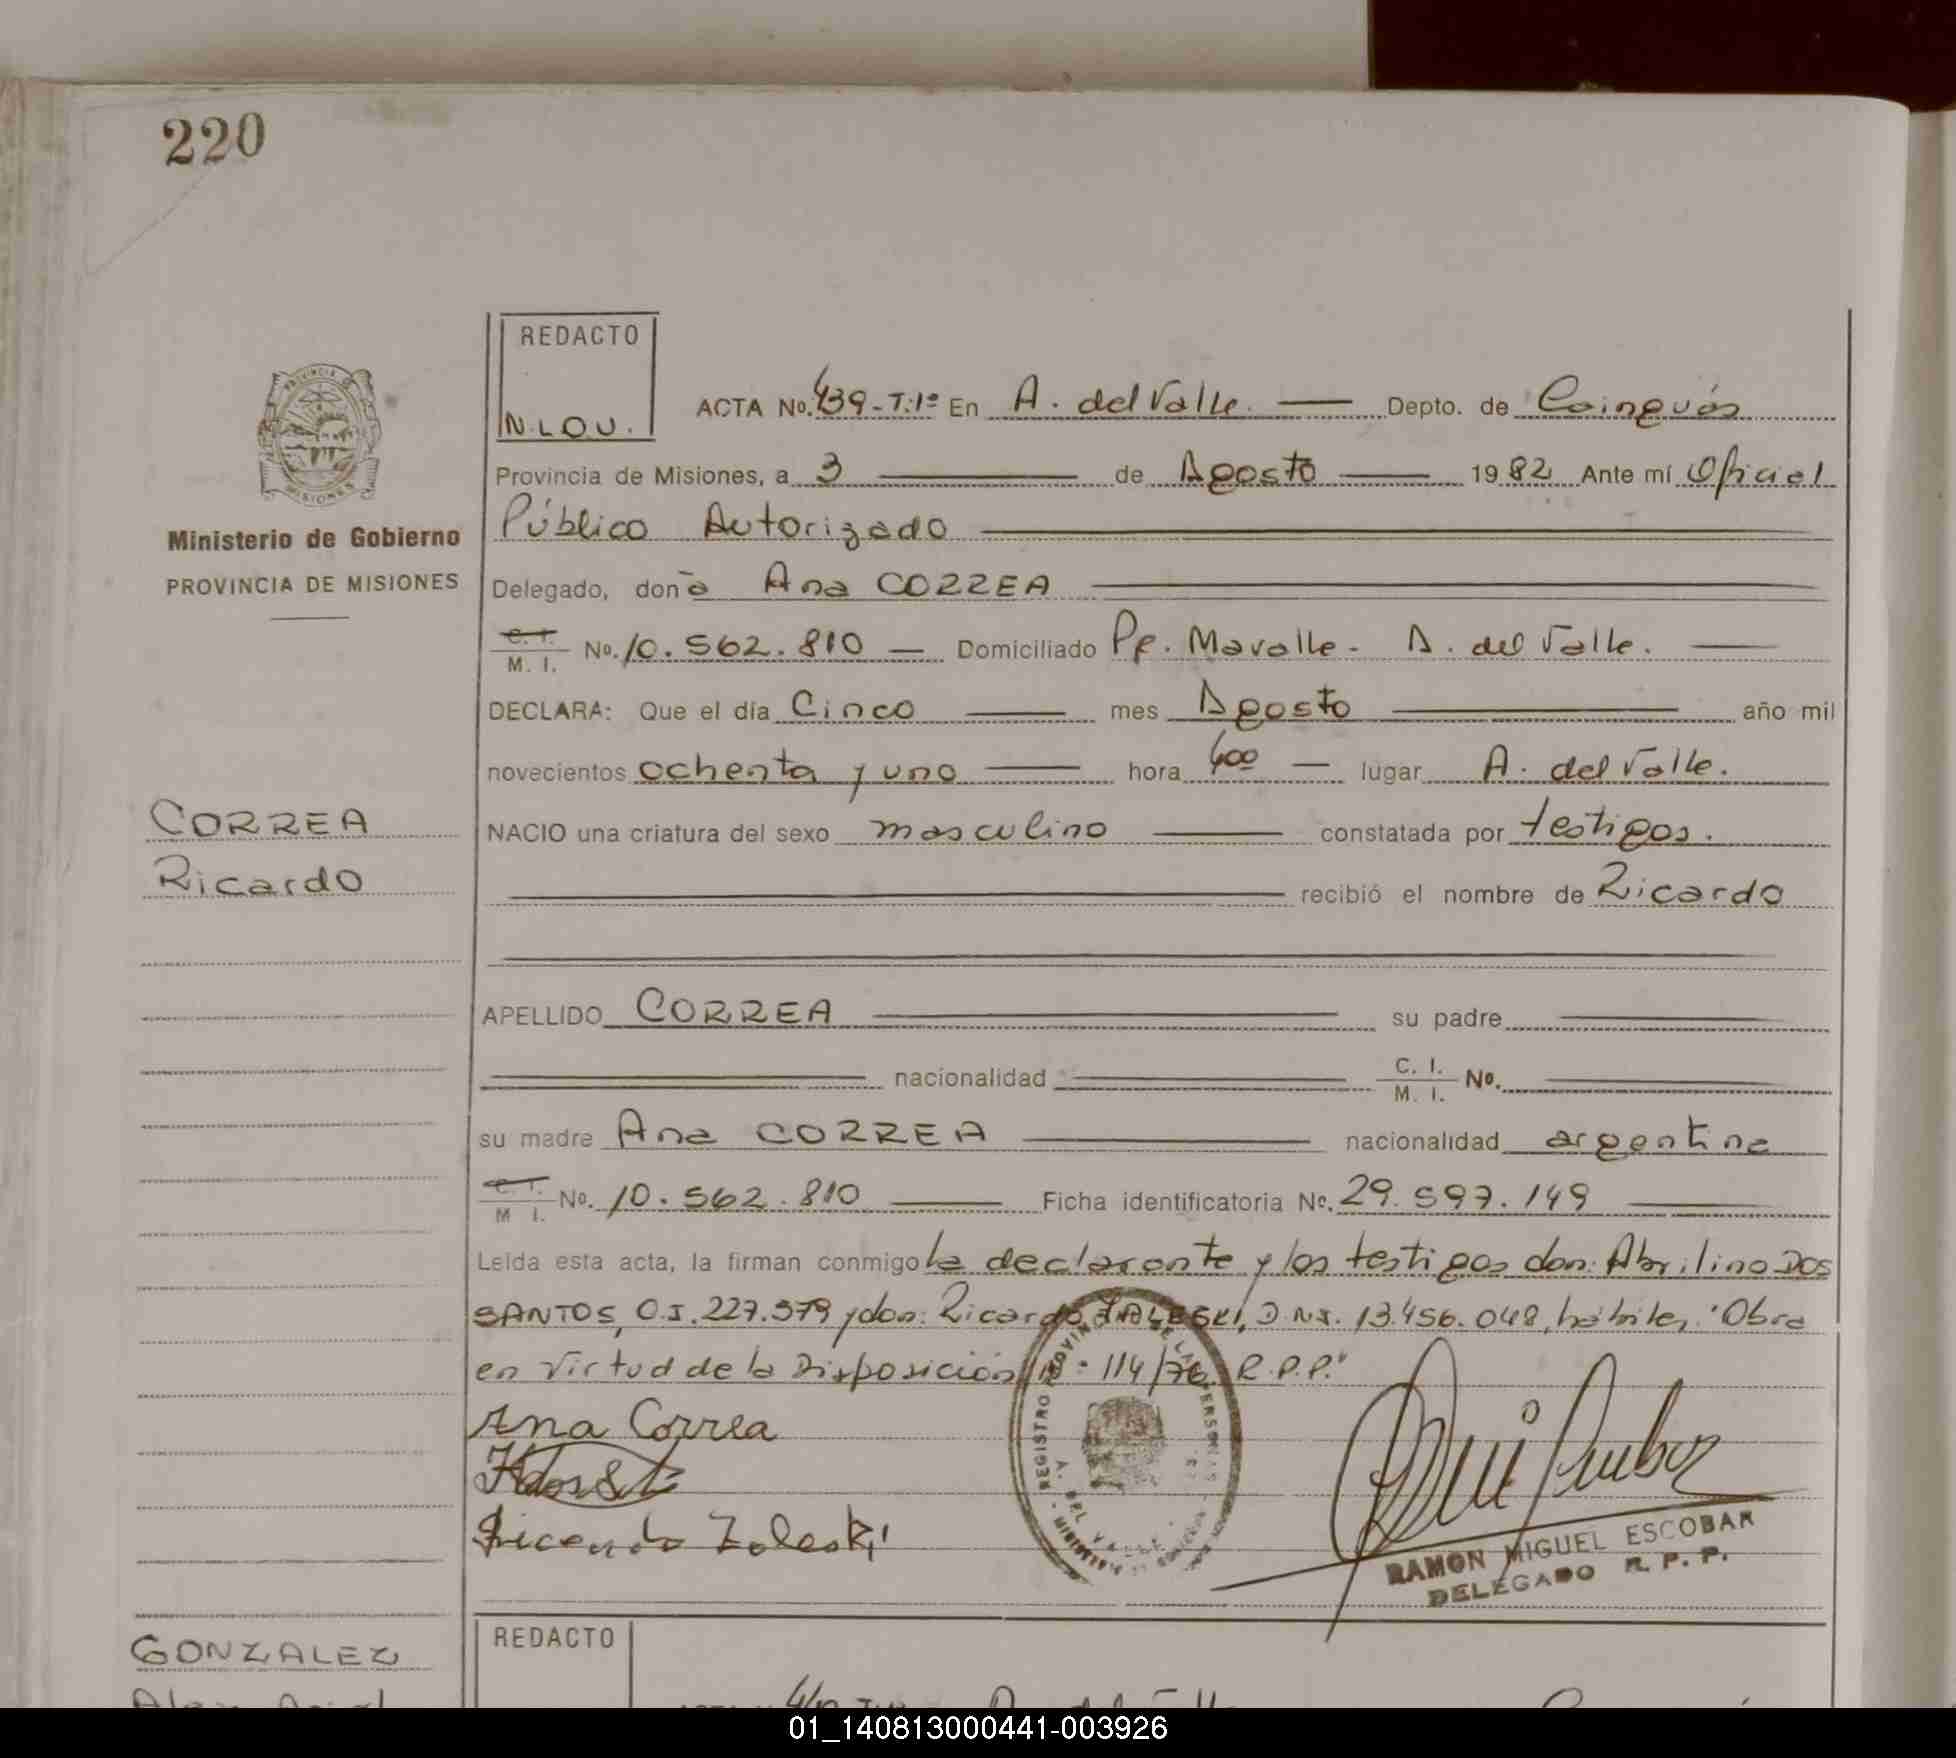 220
REDACTO
N.L.O.U.
ACTA No. 439-T:1º En A. del Valle. Depto. de Cainguás
Provincia de Misiones, a 3 de Agosto 1982 Ante mí Oficial
Público Autorizado
Ministerio de Gobierno
PROVINCIA DE MISIONES
Delegado, doña Ana CORREA
C. I.
M. I. No. 10.562.810 Domiciliado Pje. Mavalle - A. del Valle.
DECLARA: Que el día Cinco mes Agosto año mil
novecientos ochenta y uno hora 400 lugar A. del Valle.
CORREA
Ricardo
NACIO una criatura del sexo masculino constatada por testigos.
recibió el nombre de Ricardo
APELLIDO CORREA su padre
nacionalidad C. I. M. I. No.
su madre Ana CORREA nacionalidad argentina
C. I.
M. I. No. 10.562.810 Ficha identificatoria No. 29.597.149
Leída esta acta, la firman conmigo la declarante y los testigos don: Abrilino DOS
SANTOS, C.I. 227.579 y don: Ricardo ZALESKI, D.N.I. 13.456.048, hábiles. "Obra
en virtud de la Disposición Nº 114/76 R.P.P."
Ana Correa
Ricardo Zaleski
REGISTRO PROVINCIAL DE LAS PERSONAS
A. DEL VALLE
RAMON MIGUEL ESCOBAR
DELEGADO R. P. P.
REDACTO
GONZALEZ
01_140813000441-003926